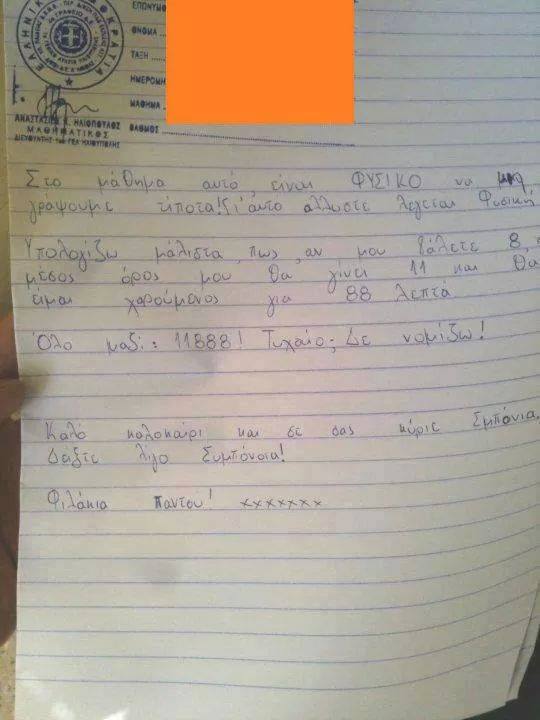 ΕΛΛΗΝΙΚ
ΟΚΡΑΤΙΑ
ΕΠΩΝΥΜΟ
ΟΝΟΜΑ
ΤΑΞΗ
ΗΜΕΡΟΜΗΝ
ΜΑΘΗΜΑ
ΒΑΘΜΟΣ
ΗΛΙΟΠΟΥΛΟΣ
ΜΑΘΗΜΑΤΙΚΟΣ
ΔΙΕΥΘΥΝΤΗΣ ΓΕΛ ΗΛΙΟΥΠΟΛΗΣ
Στο μάθημα αυτό, είναι ΦΥΣΙΚΟ να μη
γράψουμε τίποτα! Γι'αυτο αλλωστε λέγεται Φυσική
Υπολογίζω μάλιστα, πως, αν μου βάλετε 8,
μέσος όρος μου θα γίνει 11 και θα
είμαι χαρούμενος για 88 λεπτά
Όλο μαζί: 11888! Τυχαίο; Δε νομίζω!
Καλό καλοκαίρι και σε σας κύριε Σμπόνια.
Δείξτε λίγο Συμπόνοια!
Φιλάκια παντού! xxxxxxx